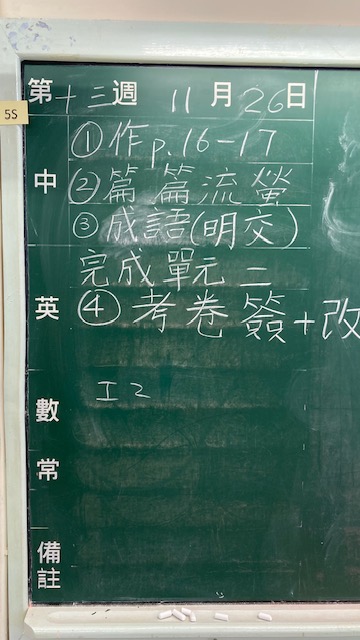 5S
第十三週 11月26日
中
①作p.16-17
②篇篇流螢
③成語(明交)
完成單元二
英
④考卷簽+改
數
I2
常
備註